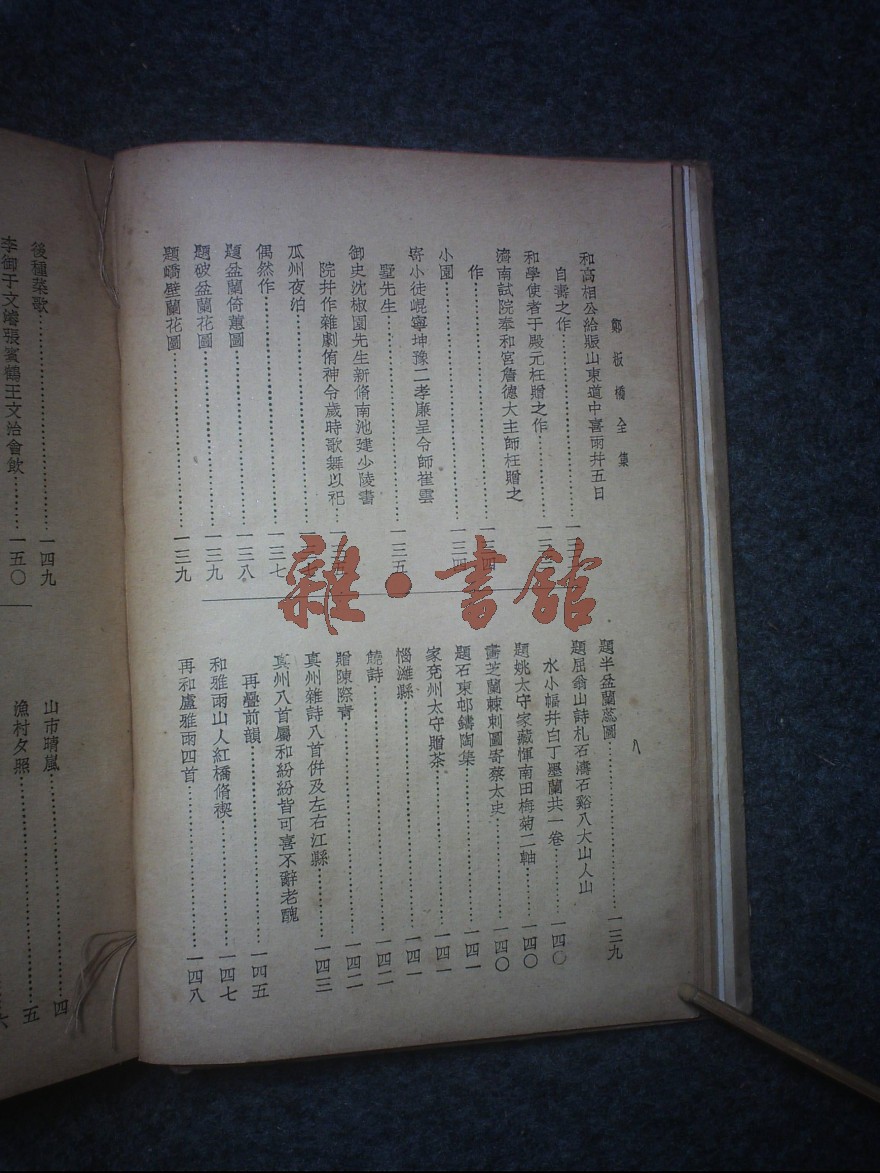 鄭板橋全集
和高相公給賑山東道中喜雨幷五日
自壽之作
和學使者于殿元枉贈之作
濟南試院奉和宮詹德大主師枉贈之
作
小園
寄小徒崐寧坤豫二孝廉呈令師崔雲
墅先生……一三五
御史沈椒園先生新脩南池建少陵書
院幷作雜劇侑神令歲時歌舞以祀
瓜州夜泊
偶然作……一三七
題盆蘭倚蕙圖……一三八
題破盆蘭花圖……一三九
題嶠壁蘭花圖……一三九
題半盆蘭蕊圖……一三九
題屈翁山詩札石濤石谿八大山人山
水小幅幷白丁墨蘭共一卷……一四〇
題姚太守家藏惲南田梅菊二軸……一四〇
畫芝蘭棘刺圖寄蔡太史……一四〇
題石東邨鑄陶集……一四一
家兗州太守贈茶……一四一
惱濰縣……一四一
饒詩……一四二
贈陳際青……一四二
真州雜詩八首併及左右江縣……一四三
真州八首屬和紛紛皆可喜不辭老醜
再疊前韻……一四五
和雅雨山人紅橋脩禊……一四七
再和盧雅雨四首……一四八
八
雜·書館
後種菜歌……一四九
李御于文濬張賓鶴王文治會飲……一五〇
山市晴嵐……
漁村夕照……